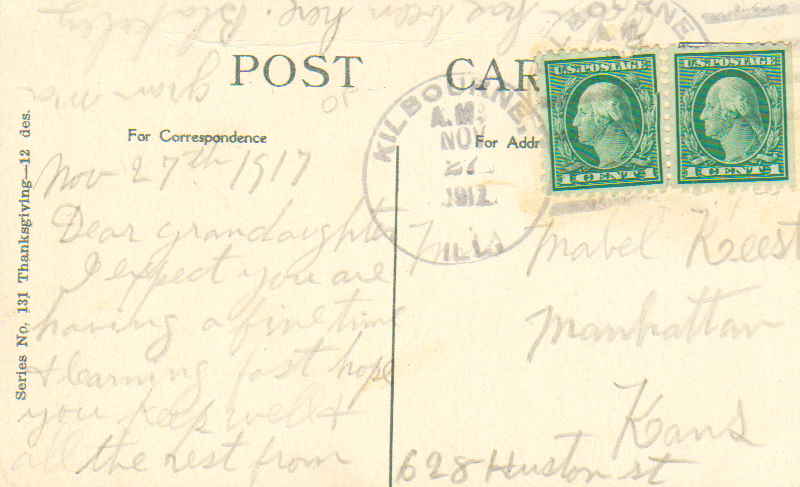 has been here. Blakeley
grandma
POST CAR
For Correspondence
For Addr
Series No. 131 Thanksgiving—12 des.
KILBOURNE,
A.M.
NOV
27
1917
ILL.
U.S. POSTAGE
1 CENT 1
U.S. POSTAGE
1 CENT 1
Nov 27th 1917
Dear grandaughter
I expect you are
having a fine time
& learning fast hope
you keep well &
all the rest from
Miss Mabel Keest
Manhattan
Kans
628 Huston st